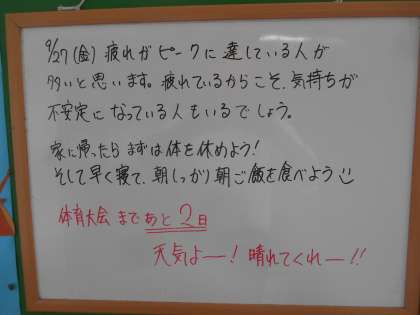 9/27(金) 疲れがピークに達している人が
多いと思います。疲れているからこそ、気持ちが
不安定になっている人もいるでしょう。
家に帰ったらまずは体を休めよう!
そして早く寝て、朝しっかり朝ご飯を食べよう
体育大会まであと2日
天気よー! 晴れてくれー!!